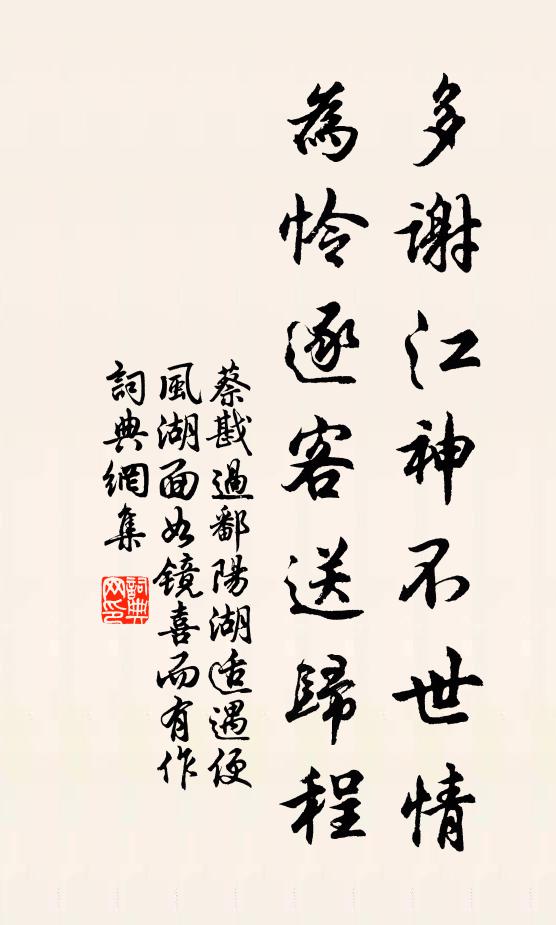 多謝江神不世情
為憐逐客送歸程
蔡戡過鄱陽湖適遇便
風湖面如鏡喜而有作
詞典網集
詞典網印